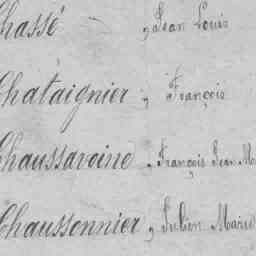 Chassé, Jean Louis
Chataignier, François
Chaussavoine, François Jean Ma
Chaussonnier, Julien Marie